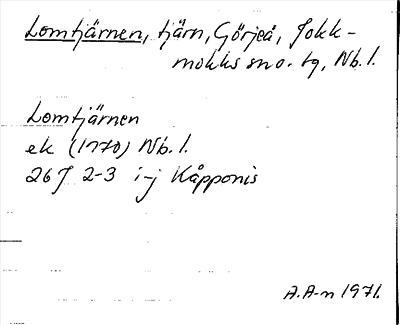 Lomtjärnen, tjärn, Görjeå, Jokk-
mokks sn o. tg, Nb. l.
Lomtjärnen
ek (1970) Nb. l.
26J 2-3 i-j Kåpponis
A.A-n 1971.